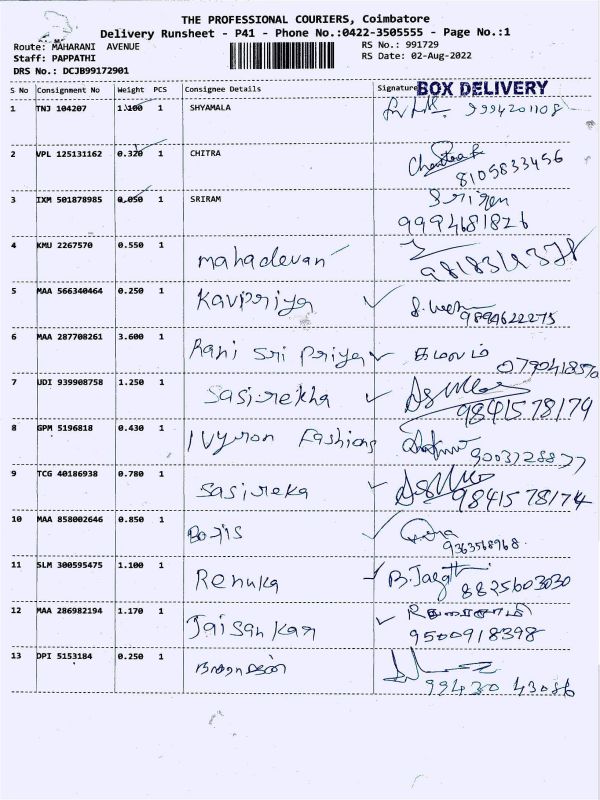 THE PROFESSIONAL COURIERS, Coimbatore
Delivery Runsheet - P41 - Phone No.:0422-3505555 - Page No.:1
Route: MAHARANI AVENUE RS No.: 991729
Staff: PAPPATHI RS Date: 02-Aug-2022
DRS No.: DCJB99172901
BOX DELIVERY
S No Consignment No Weight PCS Consignee Details Signature
1 TNJ 104207 1.100 1 SHYAMALA 9994201108
2 VPL 125131162 0.320 1 CHITRA
8105833456
3 IXM 501878985 0.050 1 SRIRAM
9994681826
4 KMU 2267570 0.550 1 mahadevan
5 MAA 566340464 0.250 1 Kavipriya
9894622275
6 MAA 287708261 3.600 1 Rani Sri Priya கமலம்
7 UDI 939908758 1.250 1 Sasirekha
9841578179
8 GPM 5196818 0.430 1 Ivyron Fashions
9003728877
9 TCG 40186938 0.780 1 Sasireka
9841578174
10 MAA 858002646 0.850 1
9363568968
11 SLM 300595475 1.100 1 Renuka
8825603030
12 MAA 286982194 1.170 1 Jaisankar
9500918398
13 DPI 5153184 0.250 1
99430 43086